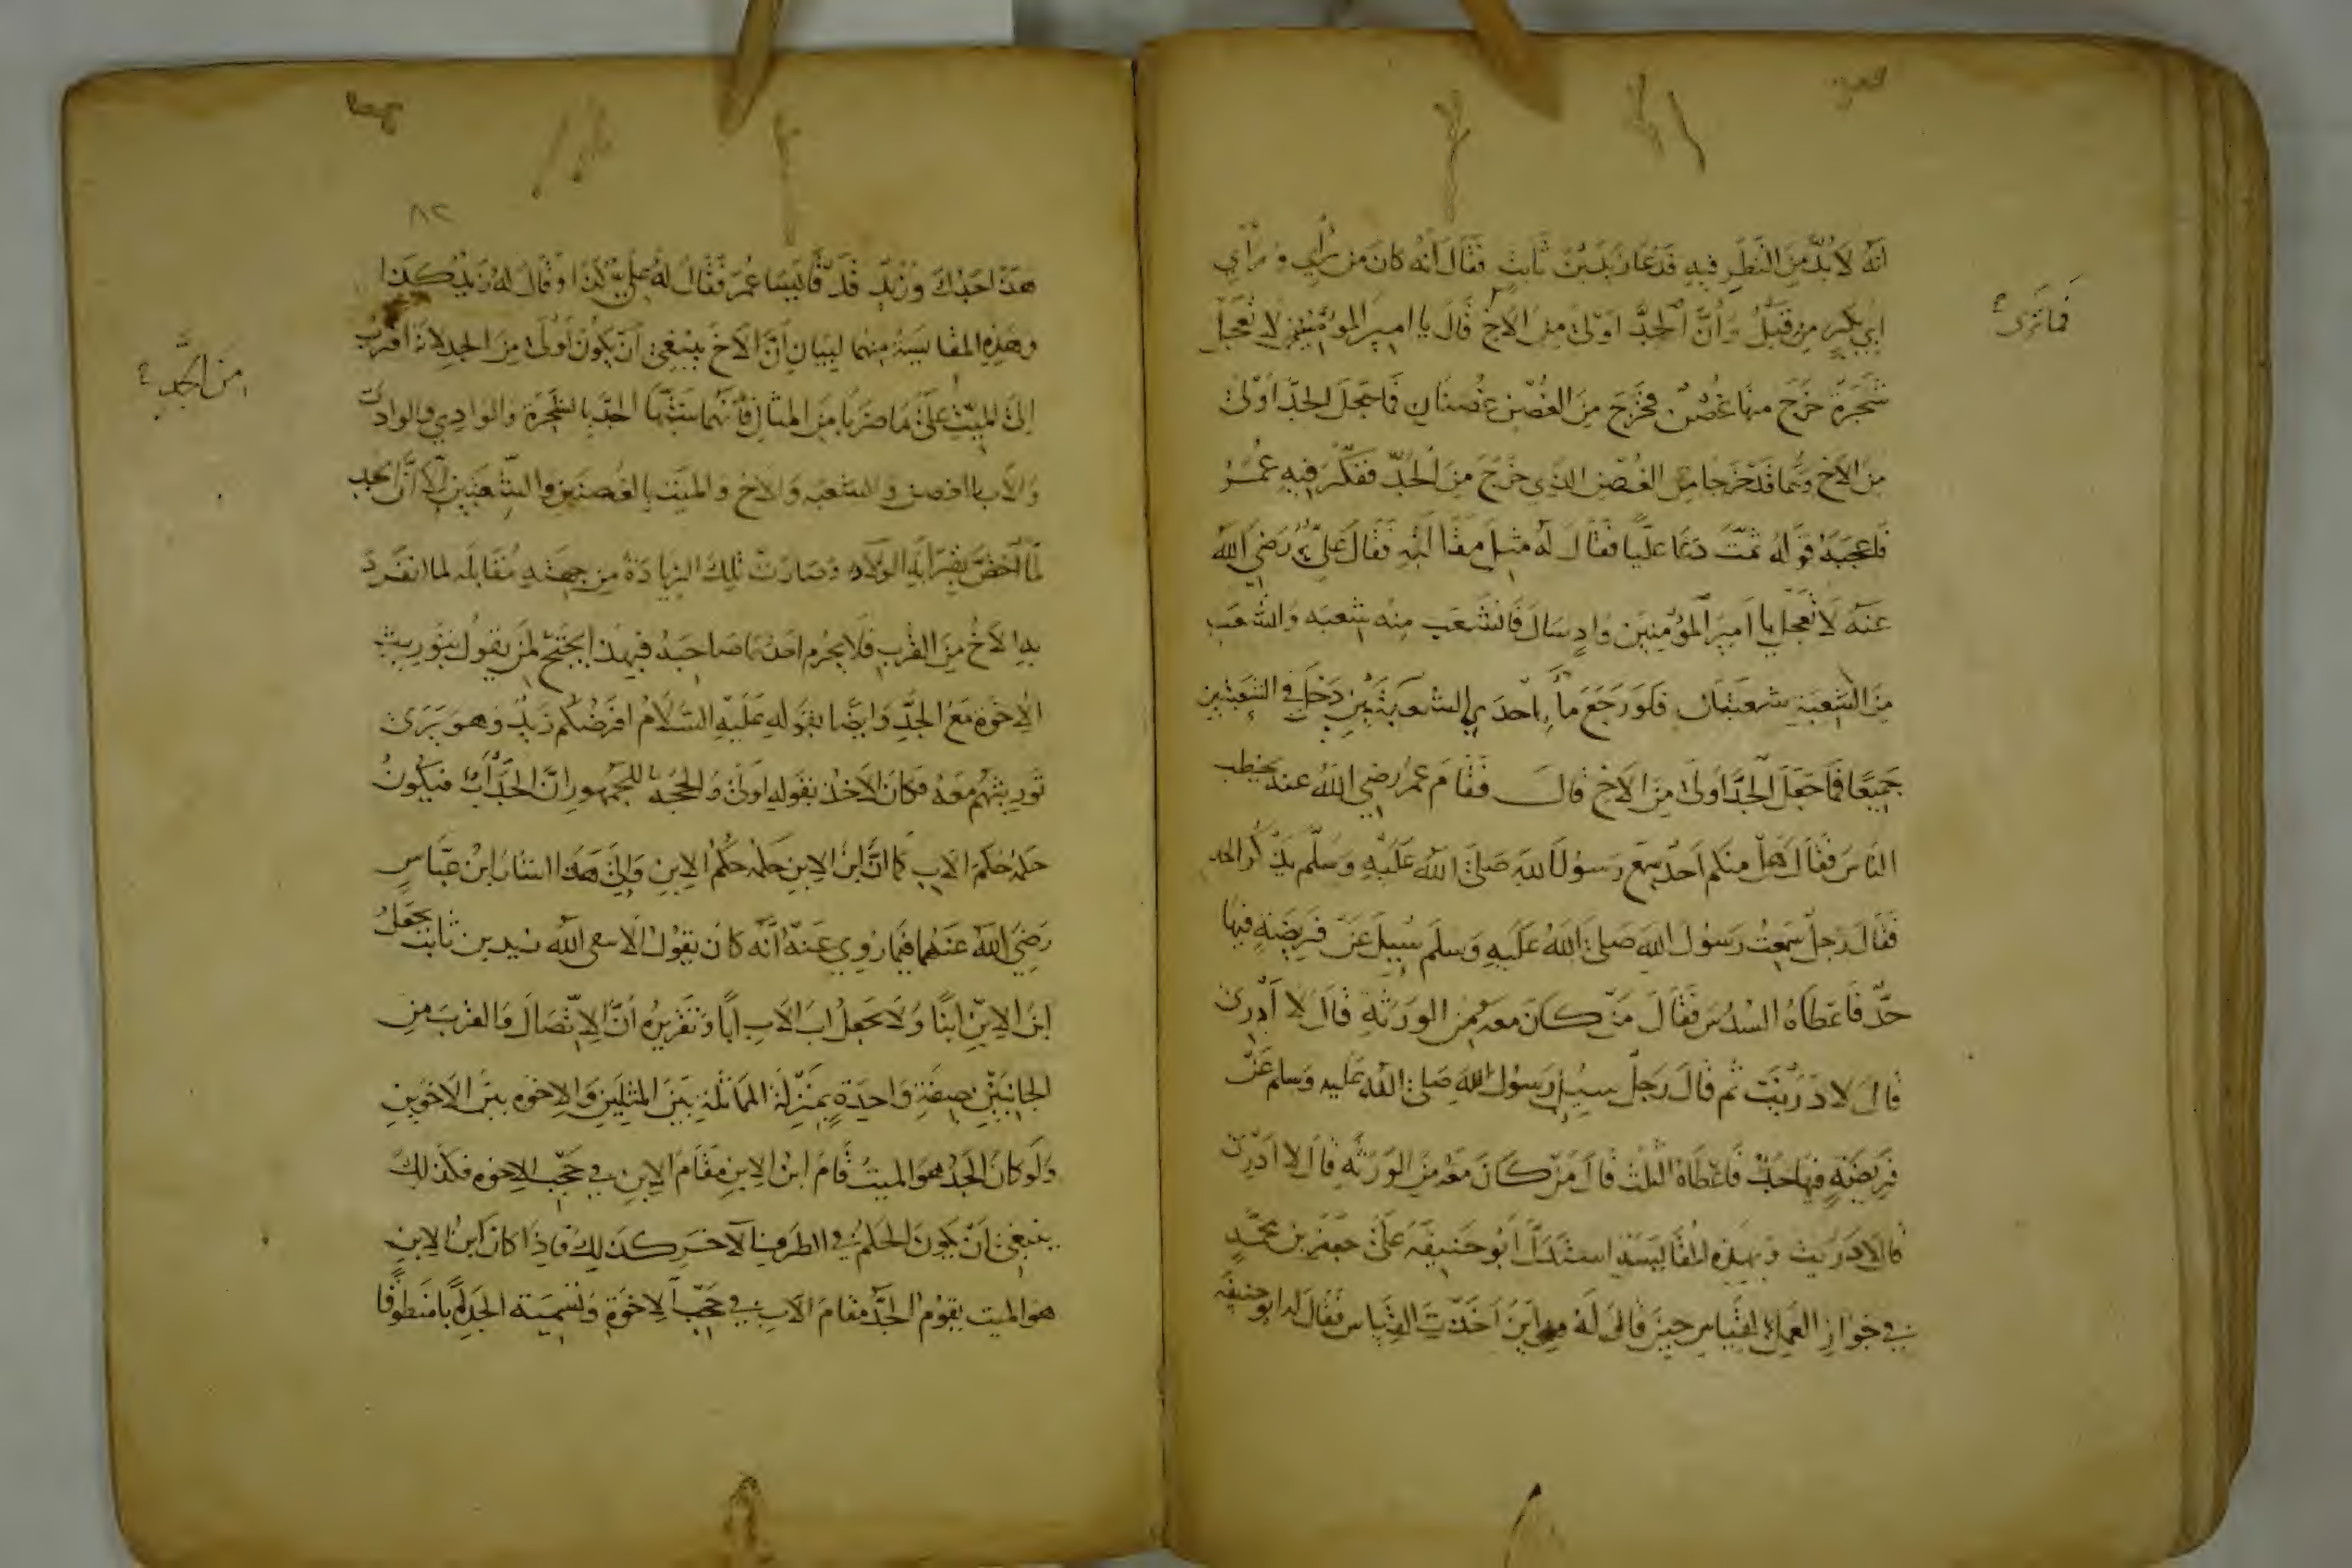 انه لا بد من النظر فيه فدعا زيد بن ثابت فقال انه كان من رأيي ورأي
ابي بكر من قبل وأن الجد أولى من الاخ قال يا امير المؤمنين لا تعجل
فما ترى
شجرة خرج منها غصن فخرج من الغصن غصنان فما تجعل الجد أولى
من الاخ وهما قد خرجا من الغصن الذي خرج من الجد ففكر فيه عمر
فاعجبه قوله ثمت دعا عليا فقال له مثل مقالته فقال علي رضي الله
عنه لا تعجل يا امير المؤمنين واد سال فانشعب منه شعبه وانشعب
من الشعبة شعبتان فلو رجع ماء احدي الشعبتين دخل في الشعبتين
جميعا فما جعل الجد اولى من الاخ قال فقام عمر رضي الله عنه يخطب
الناس فقال هل منكم احد سمع رسول الله صلى الله عليه وسلم يذكر الجد
فقال رجل سمعت رسول الله صلى الله عليه وسلم سيل عن فريضة فيها
جد فاعطاه السدس فقال من كان معه من الورثة قال لا أدرى
قال لا دريت ثم قال رجل سيل رسول الله صلى الله عليه وسلم عن
فريضة فيها جد فاعطاه الثلث قال من كان معه من الورثة قال لا ادرى
قال لا دريت وبهذه المقايسة استدل أبو حنيفه على جعفر بن محمد
في جواز العمل بالقياس حين قال له من اين اخذت القياس فقال له ابو حنيفه
٨٢
هذا جدك وزيد قد قايسا عمر فقال له علي كذا وقال له زيد كذا
وهذه المقايسة منهما لبيان ان الاخ ينبغي أن يكون أولى من الجد لانه اقرب
من الجد
الى الميت على ما ضربا من المثال فانهما شبها الجد بالشجرة والوادي والوادي
والاب بالغصن والشعبه والاخ والميت بالغصنين والشعبتين الا أن الجد
لما اختص بقرابة الولاد وصارت تلك الزيادة من جهته مقابله لما انفرد
به الاخ من القرب فلا يحرم احدهما صاحبه فبهذا يحتج لمن يقول بتوريث
الاخوة مع الجد وايضا بقوله عليه السلام افرضكم زيد وهو يرى
توريثهم معه فكان الاخذ بقوله اولى والحجه للجمهور ان الجد أب فيكون
حكمه حكم الاب كما ان ابن الابن حكمه حكم الابن والى هذا اشار ابن عباس
رضي الله عنهما فيما روي عنه أنه كان يقول الا يتقى الله زيد بن ثابت يجعل
ابن الابن ابنا ولا يجعل اب الاب ابا وتقريره أن الاتصال والقرب من
الجانبين بصفة واحدة بمنزلة المماثلة بين المثلين والاخوه بين الاخوين
ولو كان الجد هو الميت قام ابن الابن مقام الابن في حجب الاخوه فكذلك
ينبغي أن يكون الحكم في الطرف الآخر كذلك فاذا كان ابن الابن
هو الميت يقوم الجد مقام الاب في حجب الاخوة وتسمية الجد ابا منطوقا